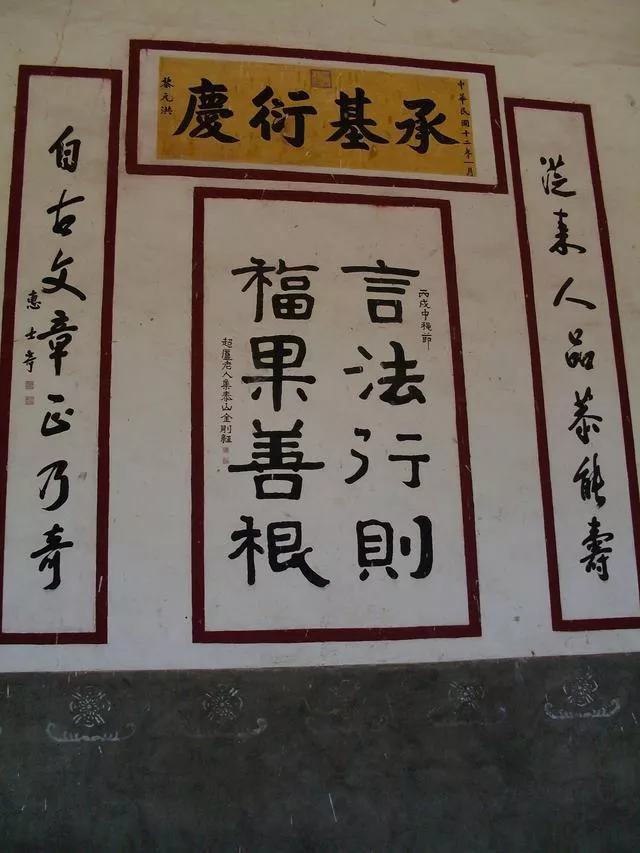 中華民國十二年一月
承基衍慶
黎元洪
從来人品恭能壽
丙戌中穐節
言法行則
福果善根
超廬老人集泰山金剛經
自古文章正乃奇
惠士奇